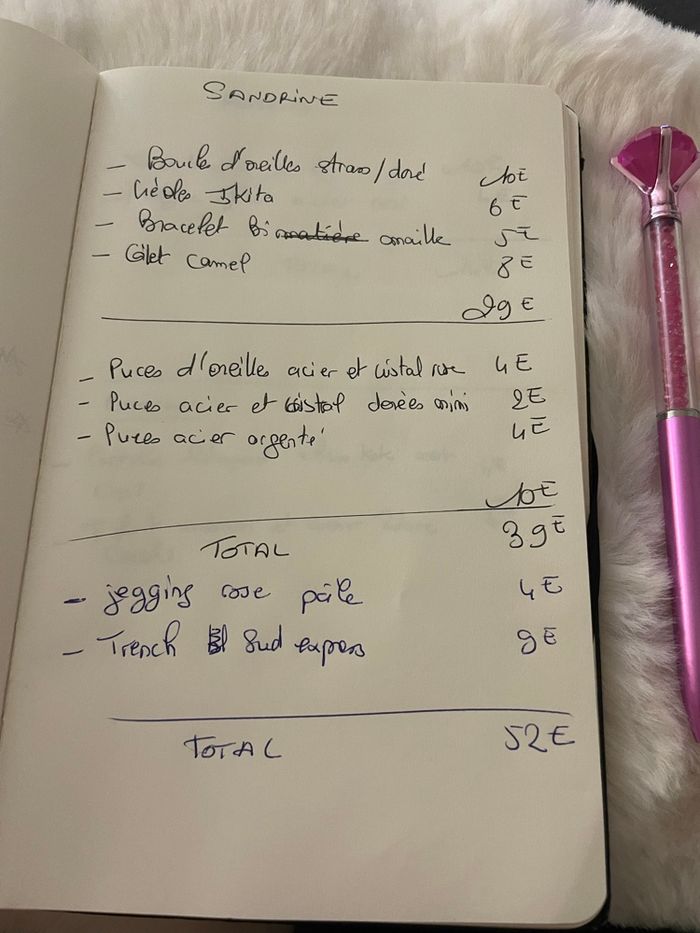 SANDRINE
- Boucle d'oreilles strass/doré 10 E
- Créoles Ikita 6 E
- Bracelet bi matière maille 5 E
- Gilet camel 8 E
29 E
- Puces d'oreilles acier et cistal rose 4 E
- Puces acier et cistal dorées mini 2 E
- Puces acier argenté 4 E
10 E
TOTAL 39 E
- jegging rose pâle 4 E
- Trench Sud express 9 E
TOTAL 52 E